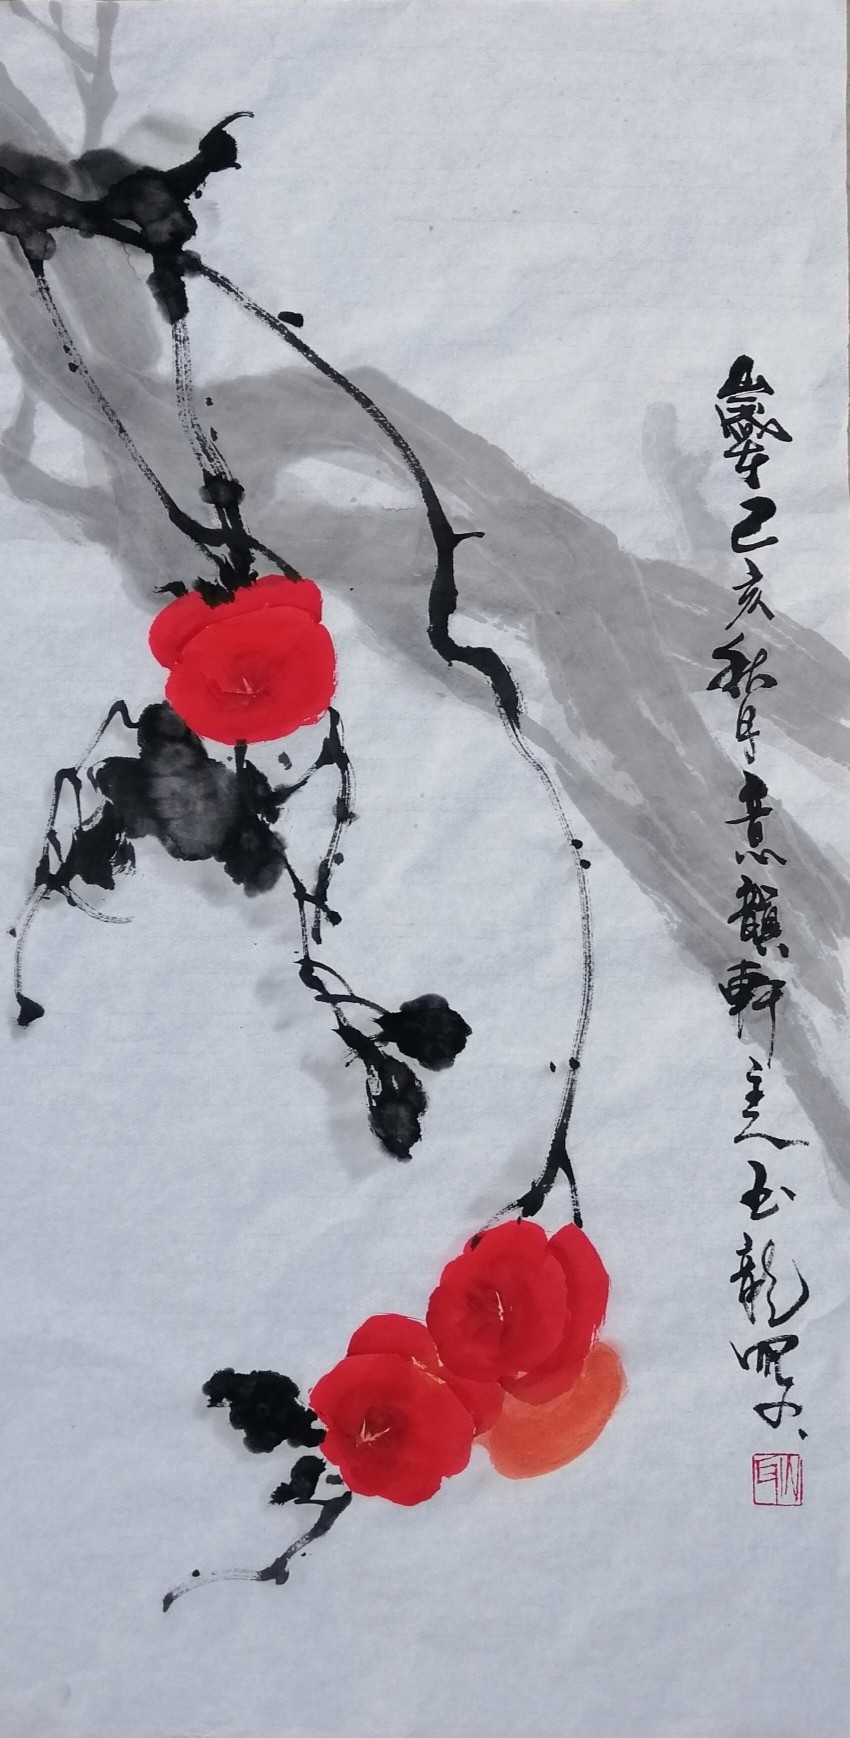 歲在己亥秋月意韻軒主人玉龍